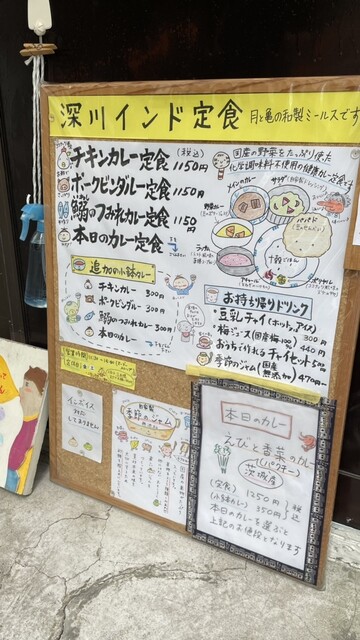 深川インド定食 月と亀の和製ミールスです
チキンカレー定食 (税込) 1150円
ポークビンダルー定食 1150円
鰯のつみれカレー定食 1150円
本日のカレー定食
国産の野菜をたっぷり使た
化学調味料不使用の健康カレー定食です
メインのカレー
サラダ
野菜カレー
パパド
ラッサム
十穀ごはん
アチャール
ポリヤル
追加の小鉢カレー
チキンカレー 300円
ポークビンダルー 300円
鰯のつみれカレー 300円
本日のカレー
お持ち帰りドリンク
・豆乳チャイ(ホットorアイス) 300円
・梅ジュース(国産梅100%) 440円
・おうちで作れるチャイセット 500
・季節のジャム(国産無添加) 470円~
営業時間
定休日
インボイス
対応
してありません
自家製
季節のジャム
本日のカレー
えびと香菜のカレー
(パクチー)
茨城産
(定食) 1250円
(小鉢カレー) 350円
税込
本日のカレーを選ぶと
上記のお値段となります